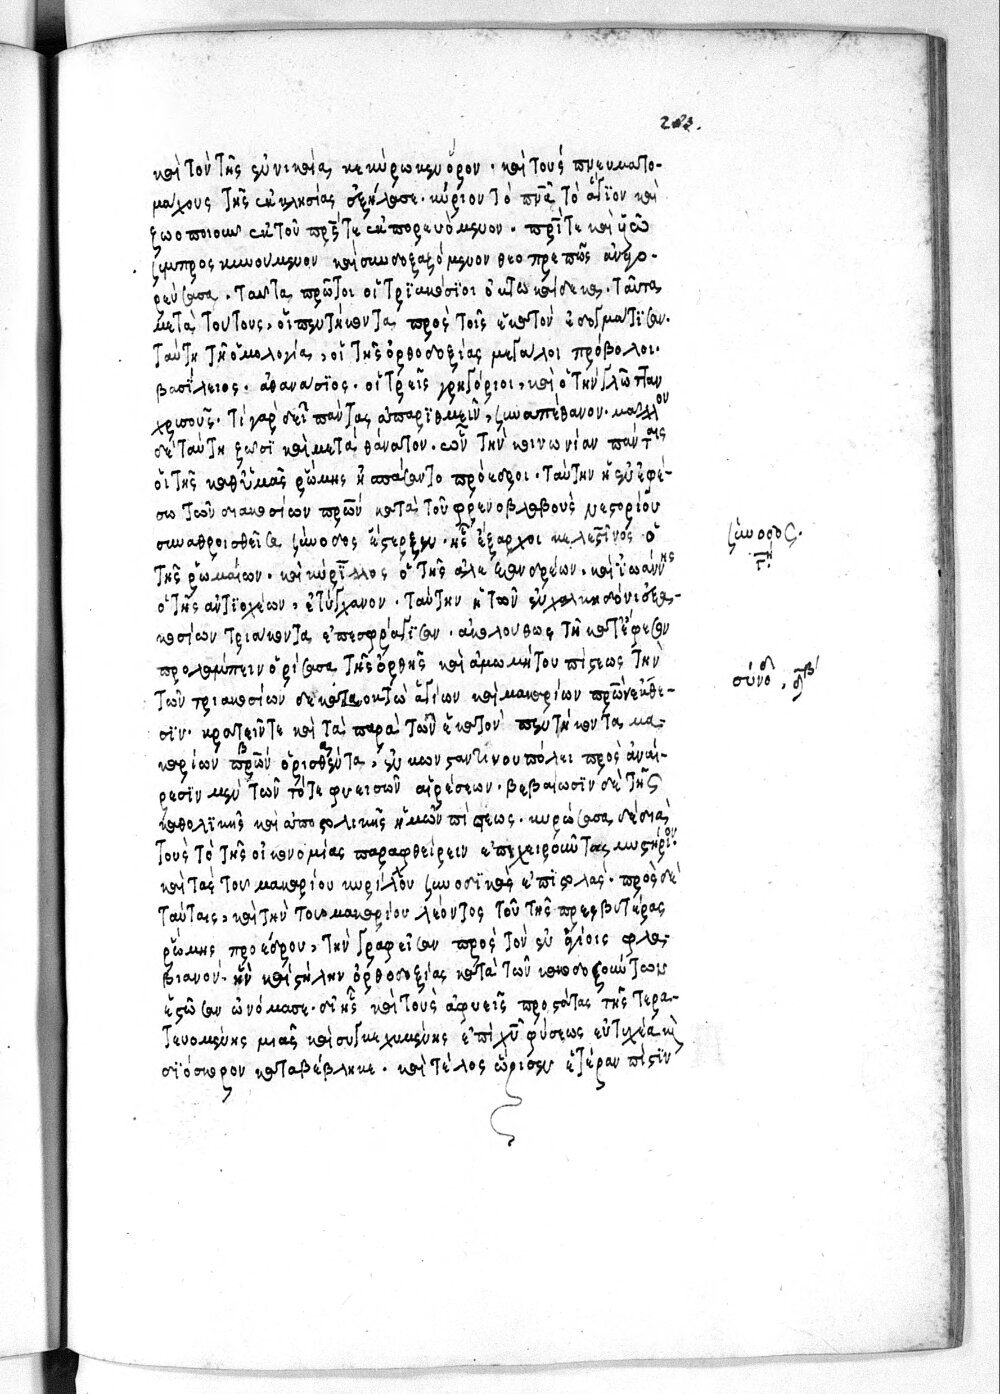 283.
καὶ τὸν τῆς ἐν νικαίᾳ κεκύρωκεν ὅρον. καὶ τοὺς πνευματο-
μάχους τῆς ἐκκλησίας ἐξήλασε. κύριον τὸ πνα τὸ ἅγιον καὶ
ζωοποιοῦν ἐκ τοῦ πρς τε ἐκπορευόμενον. πρι τε καὶ υἱῶ
συμπροσκυνούμενον καὶ συνδοξαζόμενον θεοπρεπῶς ἀνηγό-
ρευσασα. ταῦτα πρῶτοι οἱ τριακόσιοι ὀκτωκαίδεκα. ταῦτα
μετὰ τούτους, οἱ πεντήκοντα πρὸς τοῖς ἑκατὸν ἐδογμάτισαν.
ταύτη τῆ ὁμολογία, οἱ τῆς ὀρθοδοξίας μεγάλοι πρόβολοι.
βασίλειος. ἀθανάσιος. οἱ τρεῖς γρηγόριοι, καὶ ὁ τὴν γλῶτταν
χρυσοῦς. τί γὰρ δεῖ πάντας ἀπαριθμεῖν, συναπέθανον. μᾶλλον
δὲ ταύτη ζῶσι καὶ μετὰ θάνατον. ὧν τὴν κοινωνίαν παντες
οἱ τῆς καθ' ὑμᾶς ῥώμης ἠσπάσαντο πρόεδροι. ταύτην ἡ ἐν ἐφέ-
σω τῶν διακοσίων πρων κατὰ τοῦ φρενοβλαβοῦς νεστορίου
συναθροισθεῖσα σύνοδος ἔστερξεν. ἧς ἔξαρχοι κελεστῖνος ὁ
τῆς ῥωμαίων. καὶ κύριλλος ὁ τῆς ἀλεξανδρέων. καὶ ἰωάννης
ὁ τῆς ἀντιοχέων, ἐτύγχανον. ταύτην ἡ τῶν ἐν χαλκηδόνι ἑξα-
κοσίων τριάκοντα ἐπεσφράγισαν. ἀκολούθως τῆ κατ' ἔφεσον
προλάμπειν ὁρίσασα τῆς ὀρθῆς καὶ ἀμωμήτου πίστεως τὴν
τῶν τριακοσίων δέκα ὀκτὼ ἁγίων καὶ μακαρίων πρων ἔκθε-
σιν. κρατεῖν τε καὶ τὰ παρὰ τῶν ἑκατὸν πεντήκοντα μα-
καρίων πρων ὁρισθέντα, ἐν κωνσταντίνου πόλει πρὸς ἀναί-
ρεσιν μὲν τῶν τότε φυεισῶν αἱρέσεων. βεβαίωσιν δὲ τῆς
καθολικῆς καὶ ἀποστολικῆς ἡμῶν πίστεως. κυρώσασα δὲ διὰ
τοὺς τὸ τῆς οἰκονομίας παραφθείρειν ἐπιχειροῦντας μυστήριον.
καὶ τὰς τοῦ μακαρίου κυρίλλου συνοδικὰς ἐπιστολάς. πρὸς δὲ
ταύταις, καὶ τὴν τοῦ μακαρίου λέοντος τοῦ τῆς πρεσβυτέρας
ῥώμης προέδρου, τὴν γραφεῖσαν πρὸς τὸν ἐν ἁγίοις φλα-
βιανόν. ἣν καὶ στήλην ὀρθοδοξίας κατὰ τῶν κακοδοξούντων
ἑστῶσαν ὠνόμασε. δι' ἧς καὶ τοὺς ἀφυεῖς προστάτας τῆς τερα-
τευομένης μιᾶς καὶ συγκεχυμένης ἐπὶ χυ φύσεως εὐτυχέα κ
διόσκορον καταβέβληκε. καὶ τέλος ὥρισεν ἑτέραν πίστιν
σύνοδος.
γη
σύνοδ, δ